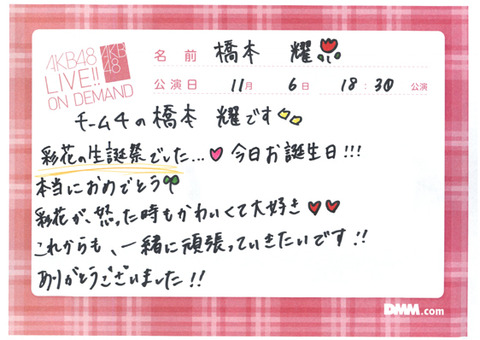 AKB48
LIVE!!
ON DEMAND
AKB
48
名前 橋本 耀
公演日 11月 6日 18:30 公演
チーム4の橋本 耀です
彩花の生誕祭でした... 今日お誕生日!!!
本当におめでとう
彩花が、怒った時もかわいくて大好き
これからも、一緒に頑張っていきたいです!!
ありがとうございました!!
DMM.com